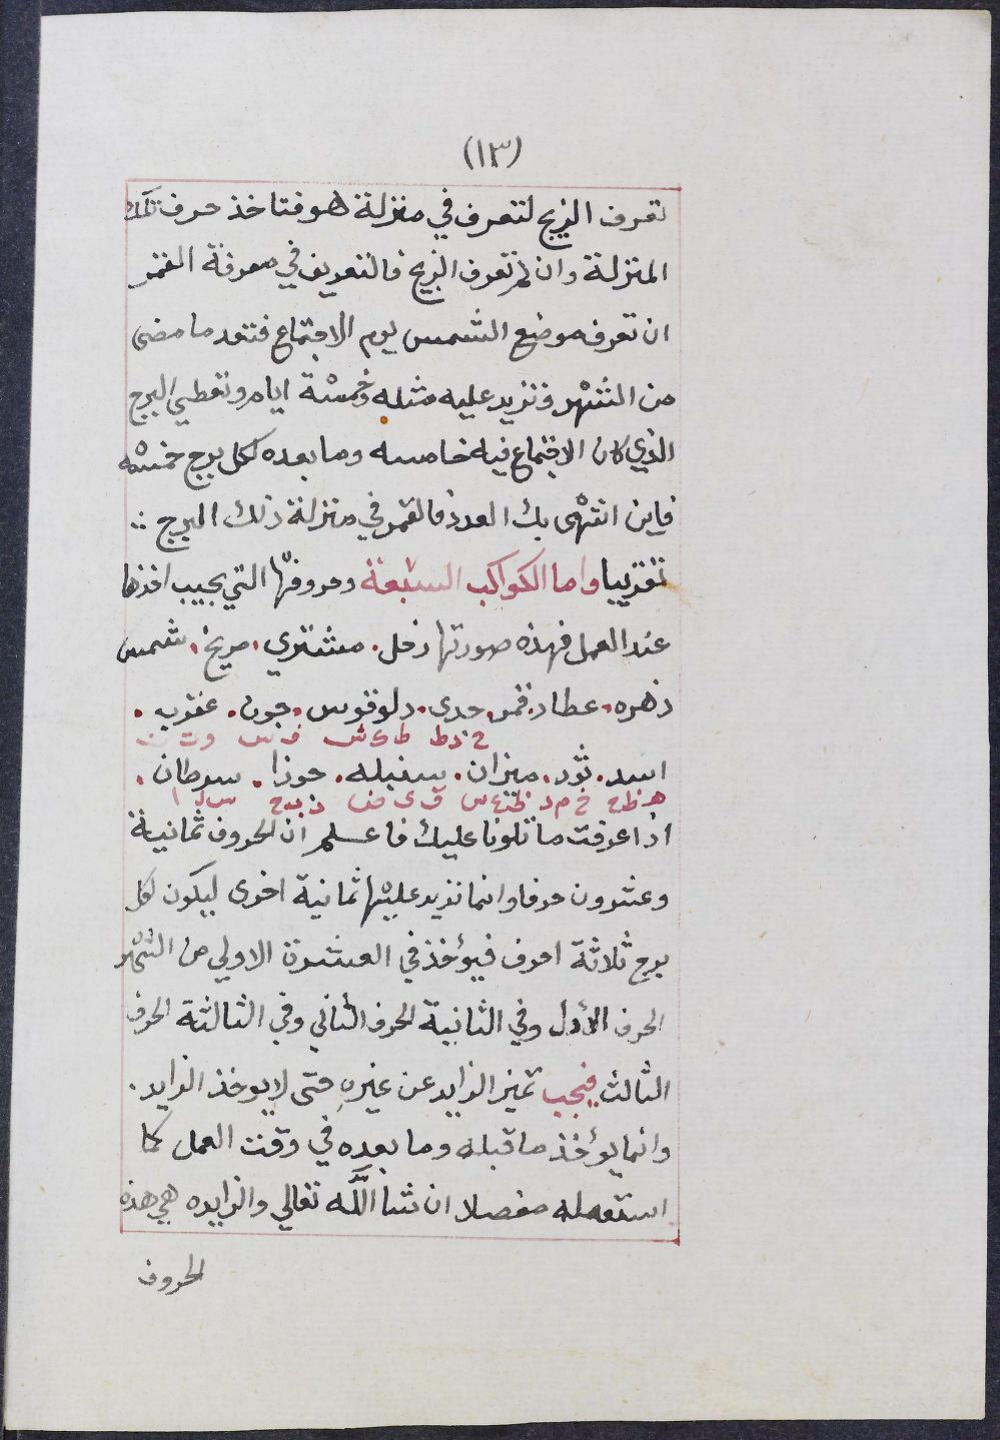 (١٣)
تعرف الزيج لتعرف في منزلة هو فتاخذ حرف تلك
المنزلة وان لم تعرف الزيج فالتعريف في معرفة القمر
ان تعرف موضع الشمس يوم الاجتماع فتعد ما مضى
من الشهر وتزيد عليه مثله وخمسة ايام وتعطي البرج
الذي كان الاجتماع فيه خامسه وما بعده لكل برج خمسه
فاين انتهى بك العدد فالقمر في منزلة ذلك البرج ؞
تقريبا واما الكواكب السبعة وحروفها التي يجيب اخذها
عند العمل فهذه صورتها زحل . مشتري . مريخ . شمس
زهره . عطارد . قمر . جدى . دلو قوس . حوت . عقرب .
اسد . ثور . ميزان . سنبله . جوزا . سرطان .
اذا عرفت ما تلونا عليك فاعلم ان الحروف ثمانية
وعشرون حرفا وانما نزيد عليها ثمانية اخرى ليكون لكل
برج ثلاثة احرف فيؤخذ في العشرة الاولي من الشهر
الحرف الأول وفي الثانية الحرف الثاني وفي الثالثة الحرف
الثالث فيجب تميز الزايد عن غيره حتى لا يوخذ الزايد .
وانما يؤخذ ما قبله وما بعده في وقت العمل كما
استعمله مفصلا ان شا الله تعالي والزايده هي هذه
الحروف